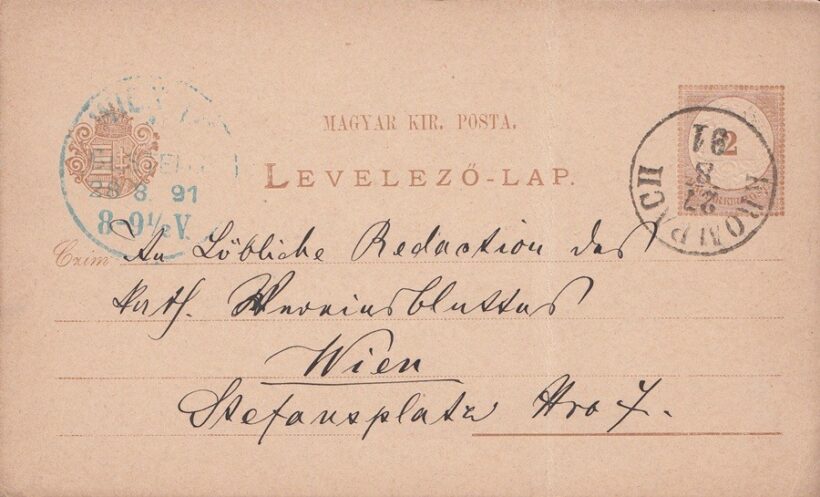 MAGYAR KIR. POSTA.
LEVELEZŐ-LAP.
2
KROMPACH
27
8
91
WIEN
BESTELLT
28 8 91
8-9½V
Czim
An Löbliche Redaction des
kath. Vereinsblattes
Wien
Stefansplatz Nro 7.